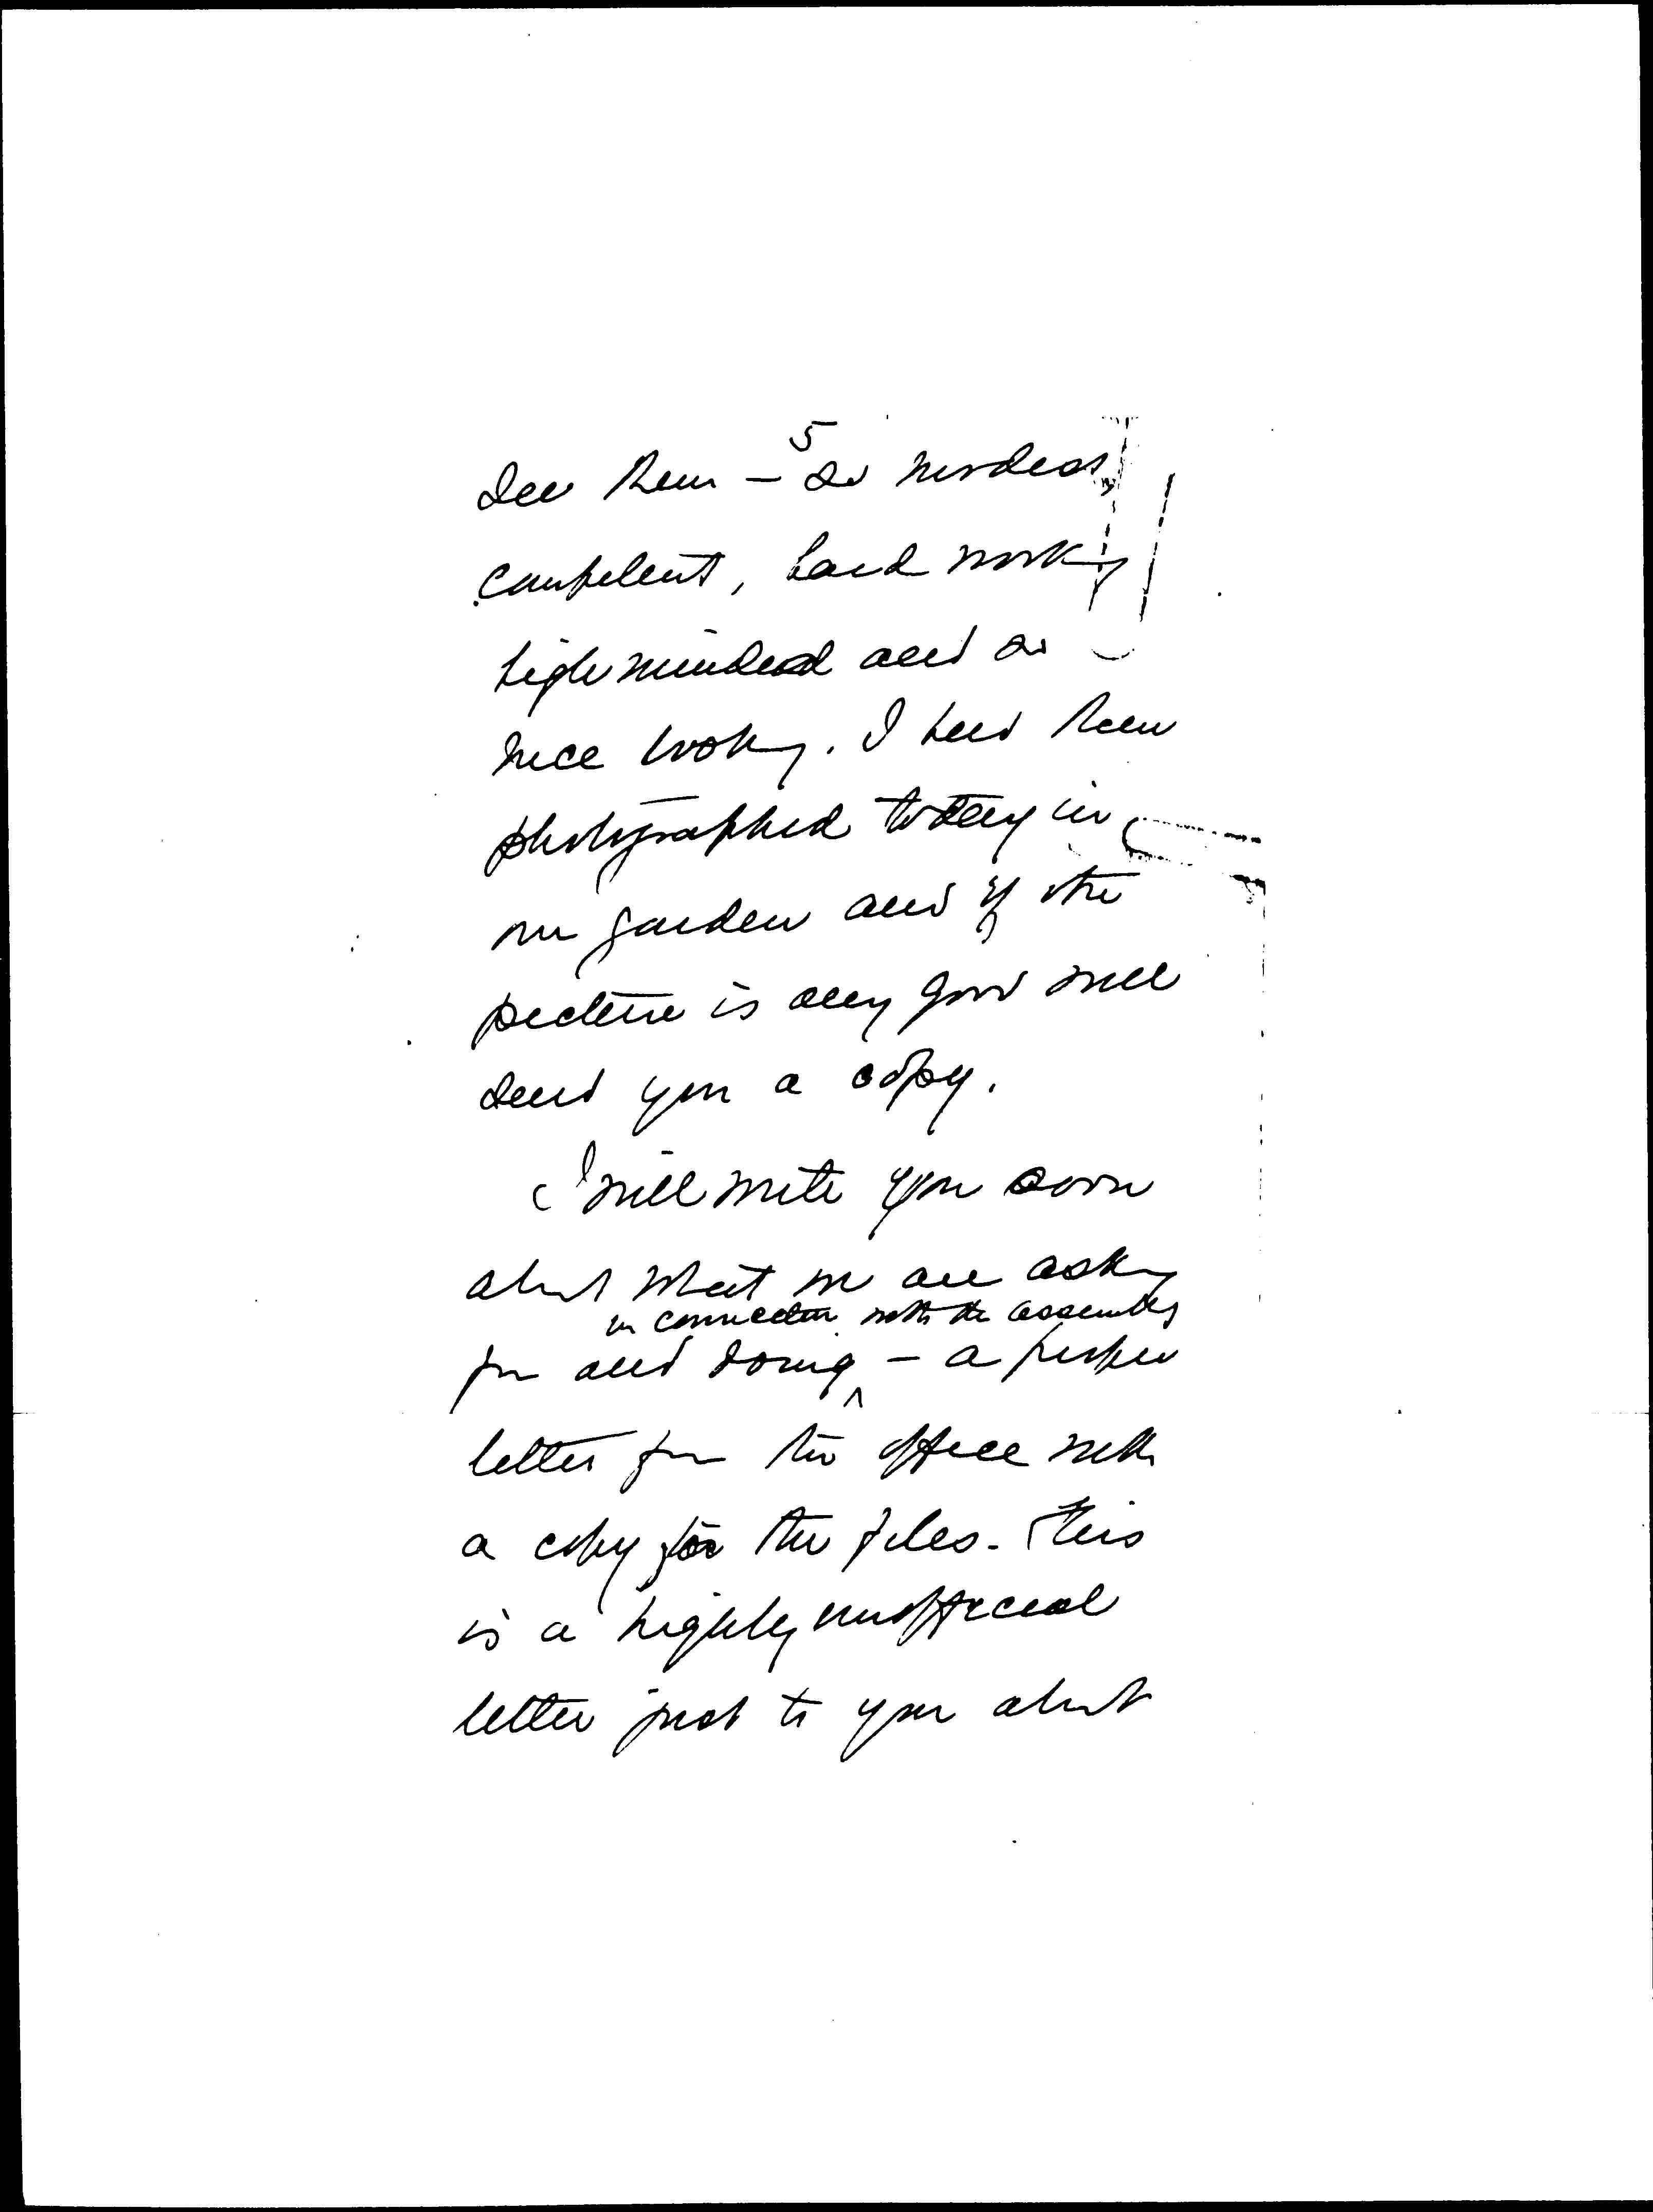 5
see them - so modest,
competent, hard working
high minded and so
nice looking. I had them
photographed today in
our garden and if the
picture is any good will
send you a copy.
I will write you soon
about what we are asking
in connection with the assembly
for and doing - a proper
letter for the office with
a copy for the files. This
is a highly unofficial
letter just to you about